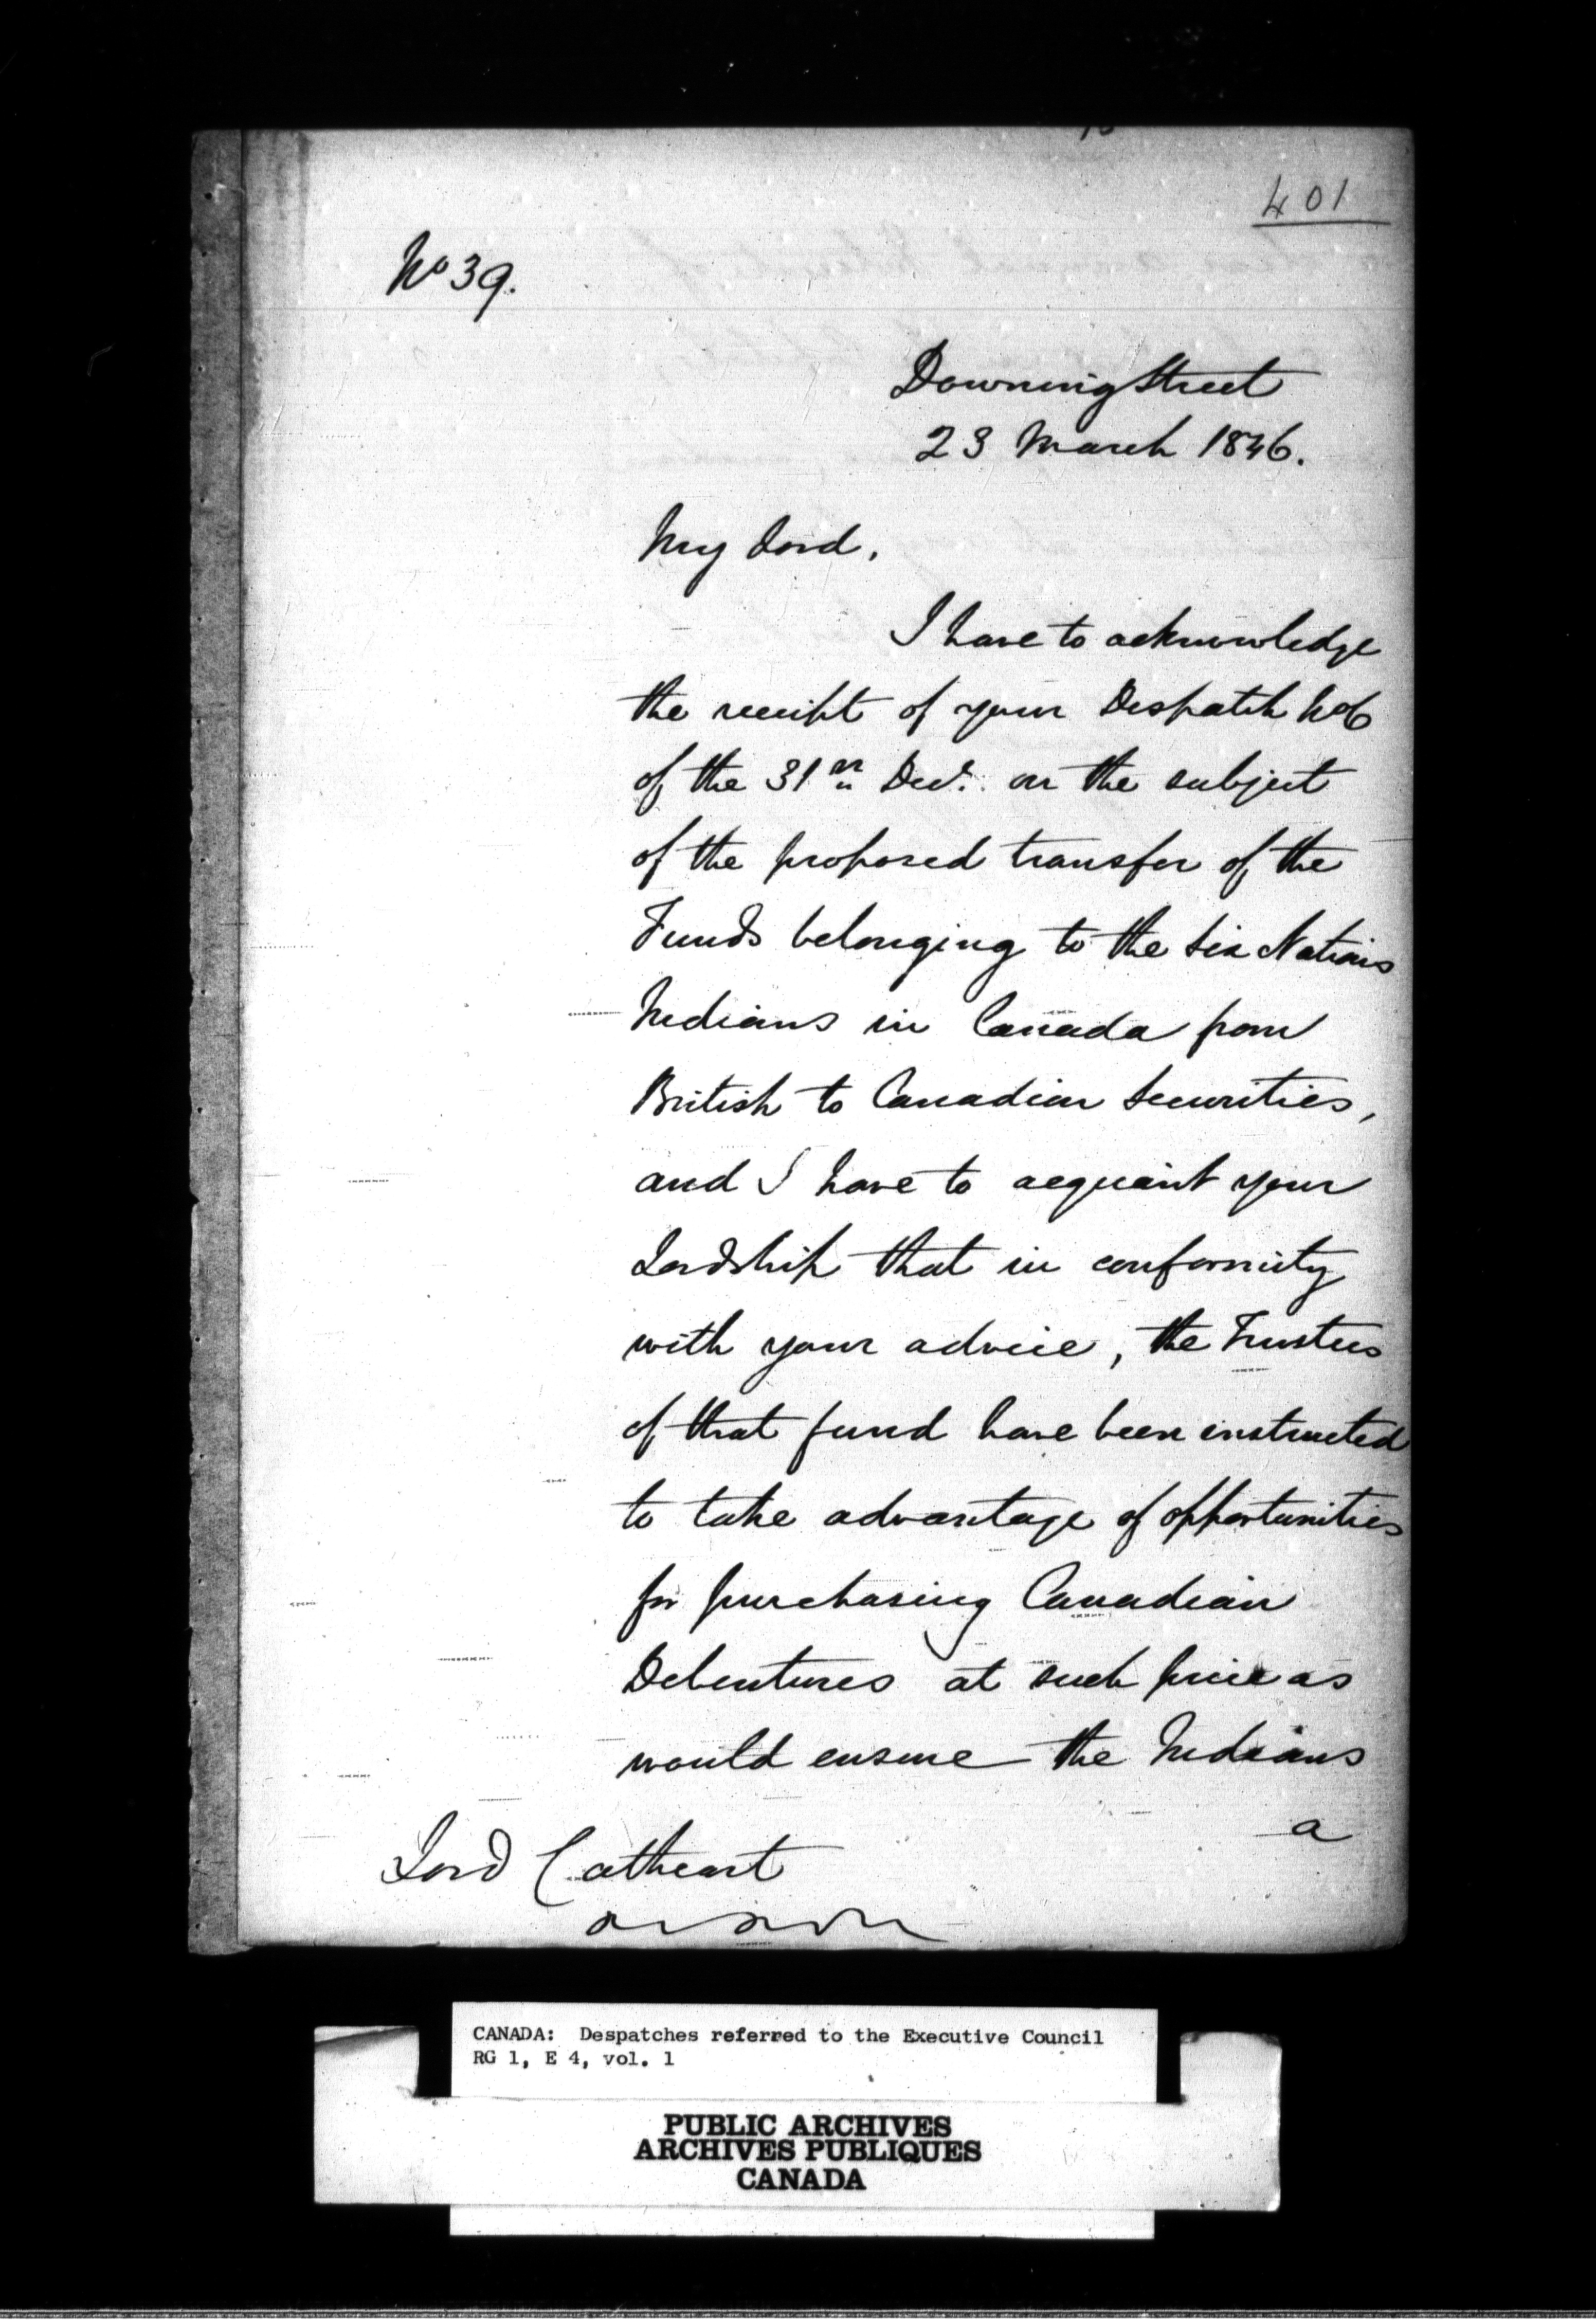 401
No 39.
Downing Street
23 March 1846.
My Lord,
I have to acknowledge
the receipt of your Despatch No 6
of the 31st Decr. on the subject
of the proposed transfer of the
Funds belonging to the Six Nations
Indians in Canada from
British to Canadian Securities,
and I have to acquaint your
Lordship that in conformity
with your advice, the Trustees
of that fund have been instructed
to take advantage of opportunities
for purchasing Canadian
Debentures at such price as
would ensure the Indians
a
Lord Cathcart
CANADA: Despatches referred to the Executive Council
RG 1, E 4, vol. 1
PUBLIC ARCHIVES
ARCHIVES PUBLIQUES
CANADA